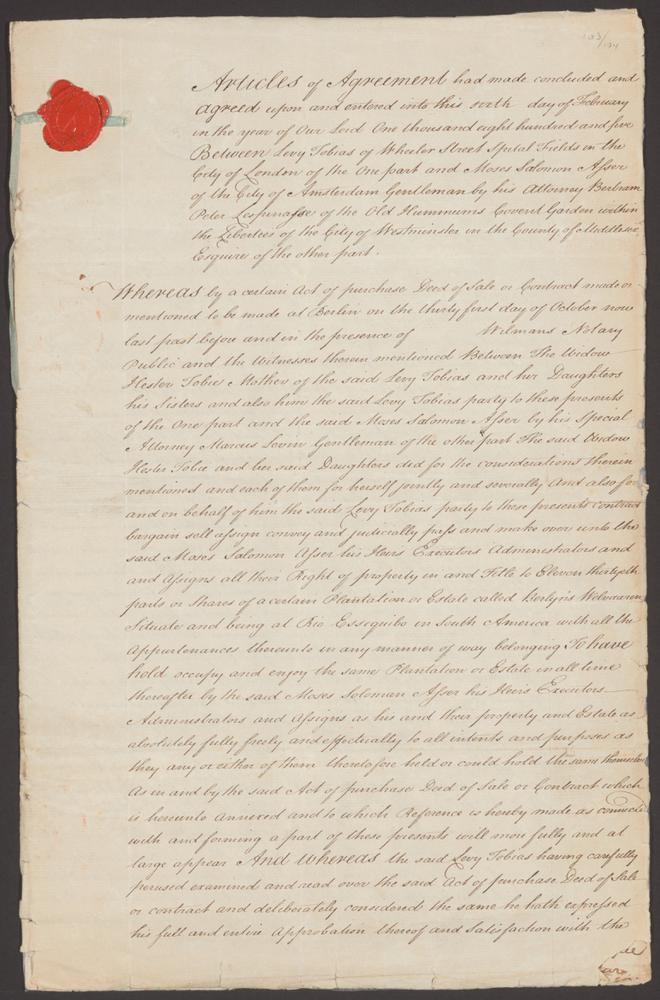 103/124
Articles of Agreement had made concluded and
agreed upon and entered into this sixth day of February
in the year of Our Lord One thousand eight hundred and five
Between Levy Tobias of Wheeler Street Spital Fields in the
City of London of the One part and Moses Salomon Asser
of the City of Amsterdam Gentleman by his Attorney Bertram
Peter of the Old Hummums Covent Garden within
the Liberties of the City of Westminster in the County of Middlesex
Esquire of the other part.
Whereas by a certain Act of purchase Deed of Sale or Contract made or
mentioned to be made at Berlin on the thirty first day of October now
last past before and in the presence of Wilmans Notary
Public and the Witnesses therein mentioned Between The Widow
Hester Tobie Mother of the said Levy Tobias and her Daughters
his Sisters and also him the said Levy Tobias party to these presents
of the One part and the said Moses Salomon Asser by his Special
Attorney Marcus Levin Gentleman of the other part The said Widow
Hester Tobie and her said Daughters did for the considerations therein
mentioned and each of them for herself jointly and severally And also for
and on behalf of him the said Levy Tobias party to these presents contract
bargain sell assign convey and judicially pass and make over unto the
said Moses Salomon Asser his Heirs Executors Administrators and
and Assigns all their Right of property in and Title to Eleven thirtyeth
parts or shares of a certain Plantation or Estate called
Situate and being at Rio Essequibo in South America with all the
Appurtenances thereunto in any manner of way belonging To have
hold occupy and enjoy the same Plantation or Estate in all time
thereafter by the said Moses Soloman Asser his Heirs Executors
Administrators and Assigns as his and their property and Estate as
absolutely fully freely and effectually to all intents and purposes as
they any or either of them theretofore held or could hold the same themselves
As in and by the said Act of purchase Deed of Sale or Contract which
is hereunto annexed and to which Reference is hereby made as connected
with and forming a part of these presents will more fully and at
large appear And Whereas the said Levy Tobias having carefully
perused examined and read over the said Act of purchase Deed of Sale
or contract and deliberately considered the same he hath expressed
his full and entire Approbation thereof and Satisfaction with the